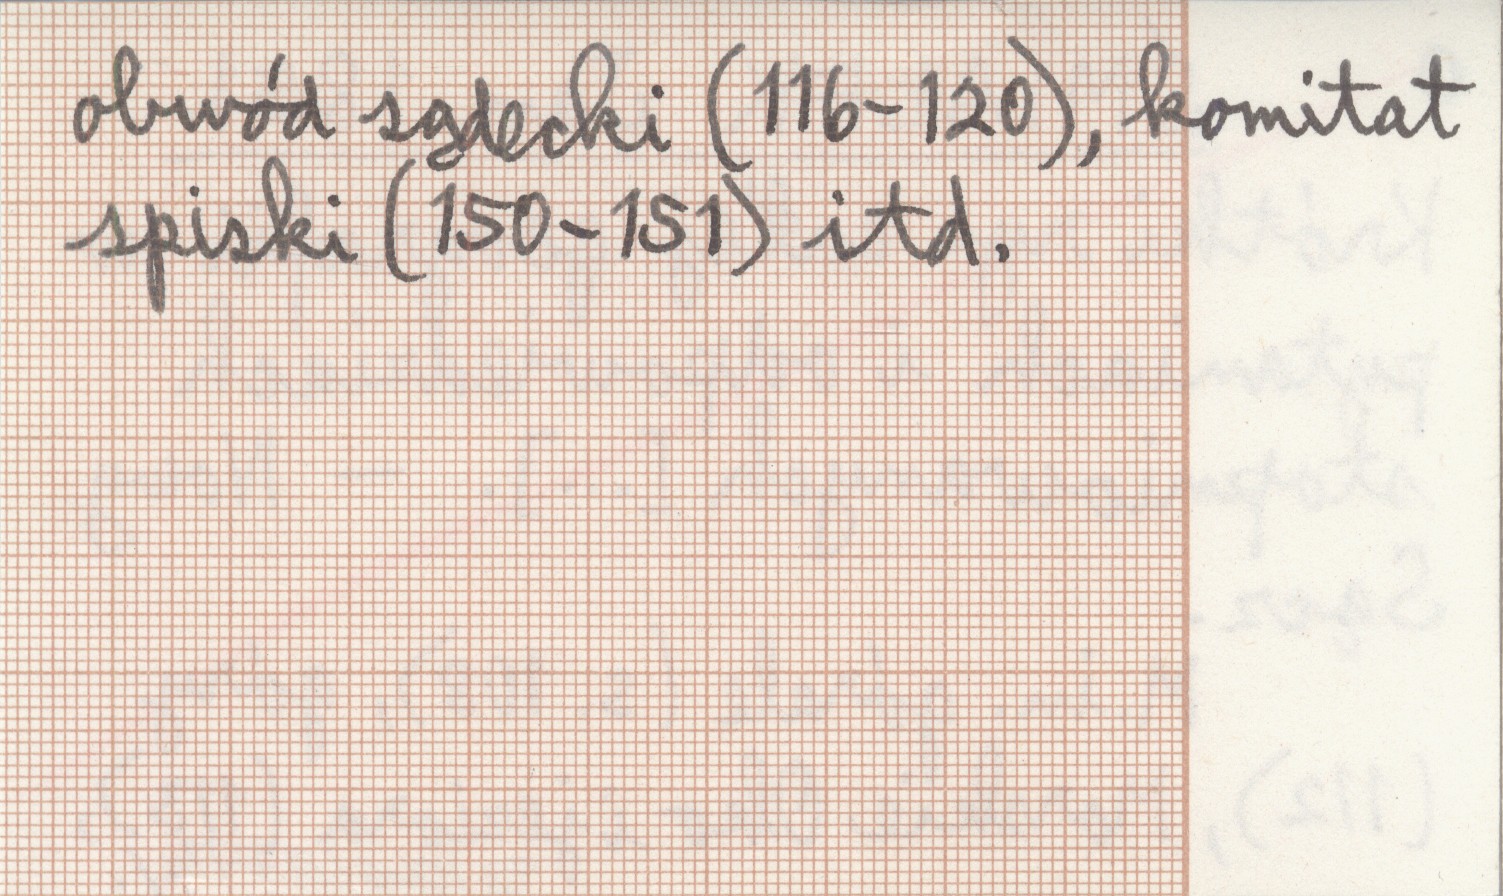 obwód sądecki (116-120), komitat
spiski (150-151) itd.